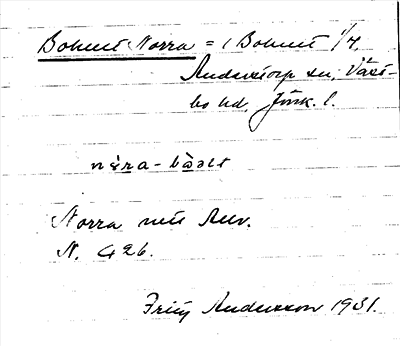 Bohult Norra = (Bohult 1/4
Anderstorp sn, Väst-
bo hd, Jönk. l.
Norra mtl Auv.
N. 426.
Fritz Andersson 1931.